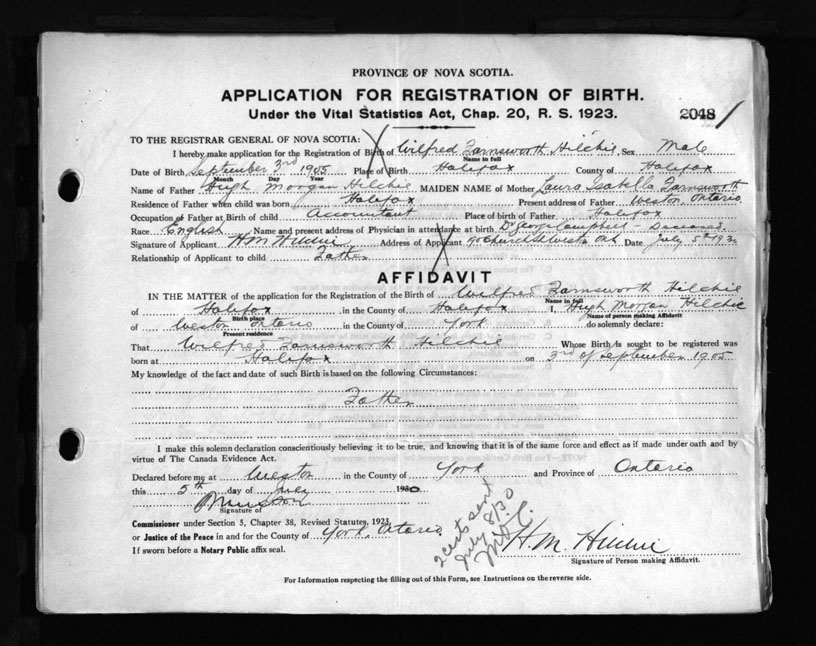 PROVINCE OF NOVA SCOTIA.
APPLICATION FOR REGISTRATION OF BIRTH.
Under the Vital Statistics Act, Chap. 20, R. S. 1923.
20481
TO THE REGISTRAR GENERAL OF NOVA SCOTIA:
I hereby make application for the Registration of Birth of Wilfred Farnsworth Hilchie Sex Male
Name in full
Date of Birth September 3rd 1905 Place of Birth Halifax County of Halifax
Month Day Year
Name of Father Hugh Morgan Hilchie MAIDEN NAME of Mother Laura Isabella Farnsworth
Residence of Father when child was born Halifax Present address of Father Weston, Ontario
Occupation of Father at Birth of child Accountant Place of birth of Father Halifax
Race English Name and present address of Physician in attendance at birth Campbell - Deceased
Signature of Applicant H M Hilchie Address of Applicant 90 Church St Weston Ont. Date July 5th 193
Relationship of Applicant to child Father
AFFIDAVIT
IN THE MATTER of the application for the Registration of the Birth of Wilfred Farnsworth Hilchie
Name in full
of Halifax in the County of Halifax I, Hugh Morgan Hilchie
Birth place Name of person making Affidavit
of Weston Ontario in the County of York do solemnly declare:
Present residence
That Wilfred Farnsworth Hilchie Whose Birth is sought to be registered was
born at Halifax on 3rd of September 1905
My knowledge of the fact and date of such Birth is based on the following Circumstances:
Father
I make this solemn declaration conscientiously believing it to be true, and knowing that it is of the same force and effect as if made under oath and by
virtue of The Canada Evidence Act.
Declared before me at Weston in the County of York and Province of Ontario
this 5th day of July 1930
Signature of
Commissioner under Section 5, Chapter 38, Revised Statutes, 1923,
or Justice of the Peace in and for the County of York, Ontario
If sworn before a Notary Public affix seal.
2 certs sent
July 8/30
H. M. Hilchie
Signature of Person making Affidavit.
For Information respecting the filling out of this Form, see Instructions on the reverse side.